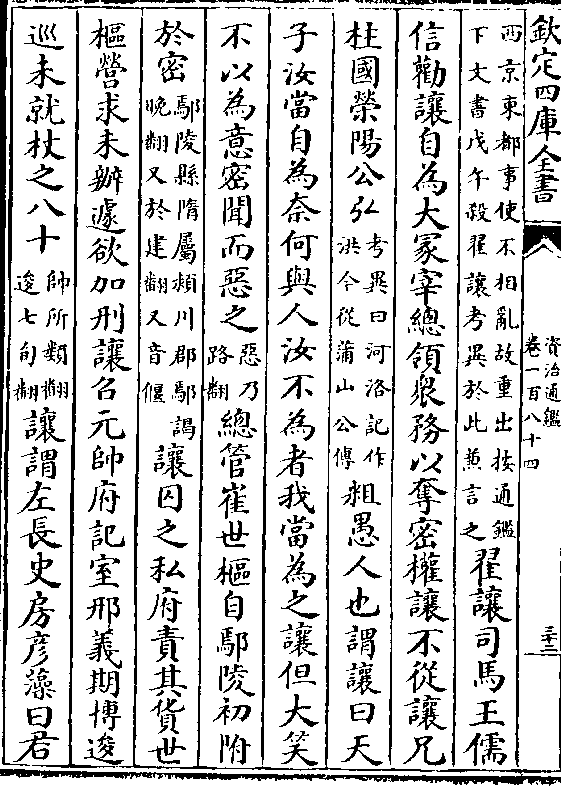 欽定四庫全書
資治通鑑
卷一百八十四
三十二
西京東都事使不相亂故重出按通鑑
下文書戊午殺翟讓考異於此兼言之
翟讓司馬王儒
信勸讓自為大冢宰總領衆務以奪密權讓不從讓兄
柱國榮陽公弘
考異曰河洛記作
洪今從蒲山公傳
粗愚人也謂讓曰天
子汝當自為奈何與人汝不為者我當為之讓但大笑
不以為意密聞而惡之
惡乃
路翻
總管崔世樞自鄢陵初附
於密
鄢陵縣隋屬潁川郡鄢謁
晚翻又於建翻又音偃
讓囚之私府責其貨世
樞營求未辦遽欲加刑讓召元帥府記室邢義期博逡
巡未就杖之八十
帥所類翻
逡七旬翻
讓謂左長史房彥藻曰君